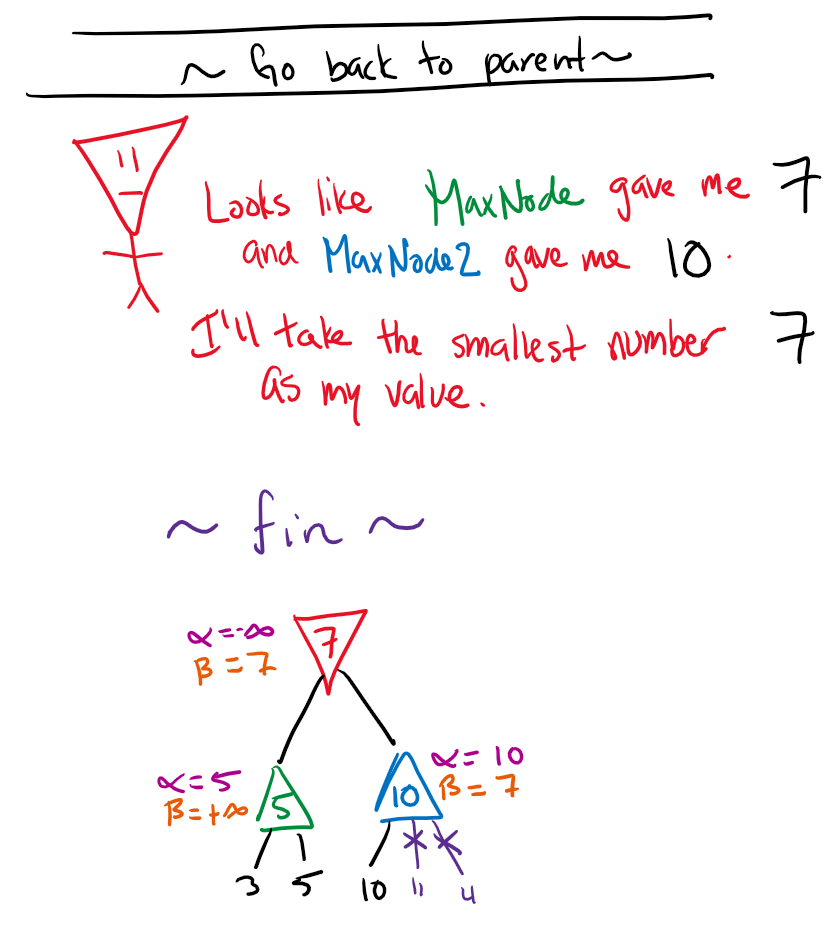 ~ Go back to parent ~
Looks like MaxNode gave me 7
and MaxNode2 gave me 10.
I'll take the smallest number 7
as my value.
~ fin ~
α=-∞
7
β=7
α=10
α=5
β=7
10
5
β=+∞
3 5 10 11 4